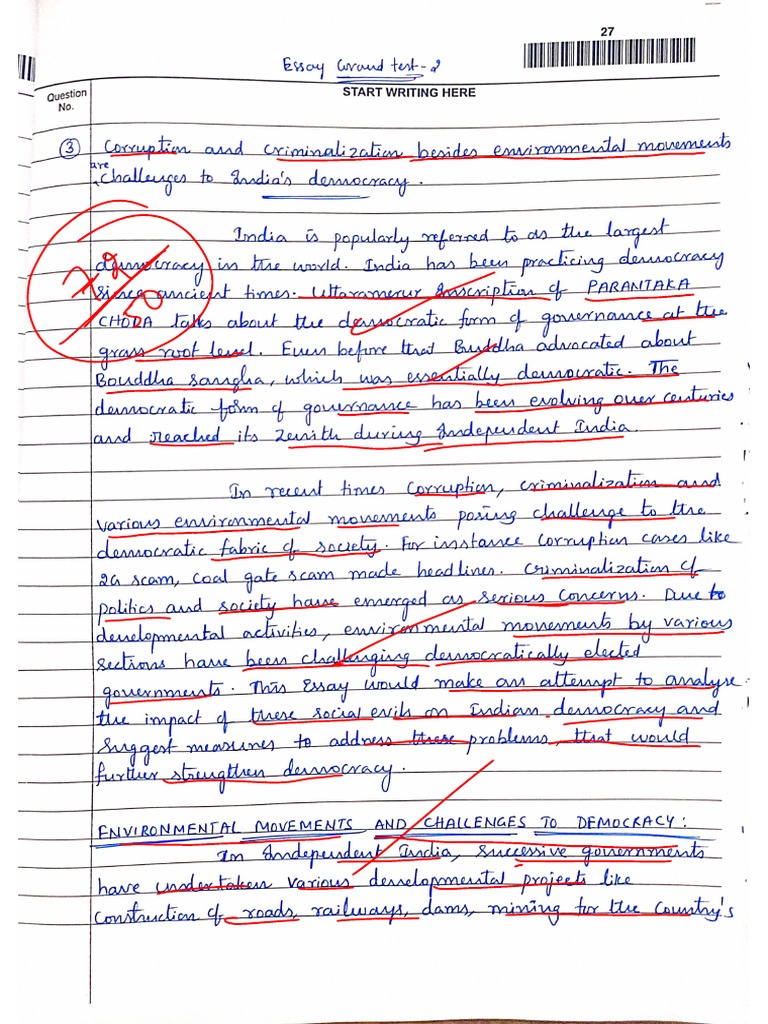 27
Essay Grand test-2
Question
No.
START WRITING HERE
③ Corruption and criminalization besides environmental movements
are
challenges to India's democracy.
India is popularly referred to as the largest
democracy in the world. India has been practicing democracy
since ancient times. Uttaramerur Inscription of PARANTAKA
CHODA talks about the democratic form of governance at the
grass root level. Even before that Buddha advocated about
Bouddha sangha, which was essentially democratic. The
democratic form of governance has been evolving over centuries
and reached its zenith during Independent India.
In recent times corruption, criminalization and
various environmental movements posing challenge to the
democratic fabric of society. For instance corruption cases like
2G scam, coal gate scam made headlines. Criminalization of
politics and society have emerged as serious concerns. Due to
developmental activities, environmental movements by various
sections have been challenging democratically elected
governments. This Essay would make an attempt to analyse
the impact of these social evils on Indian democracy and
suggest measures to address these problems, that would
further strengthen democracy.
ENVIRONMENTAL MOVEMENTS AND CHALLENGES TO DEMOCRACY:
In Independent India, successive governments
have undertaken various developmental projects like
construction of roads, railways, dams, mining for the country's